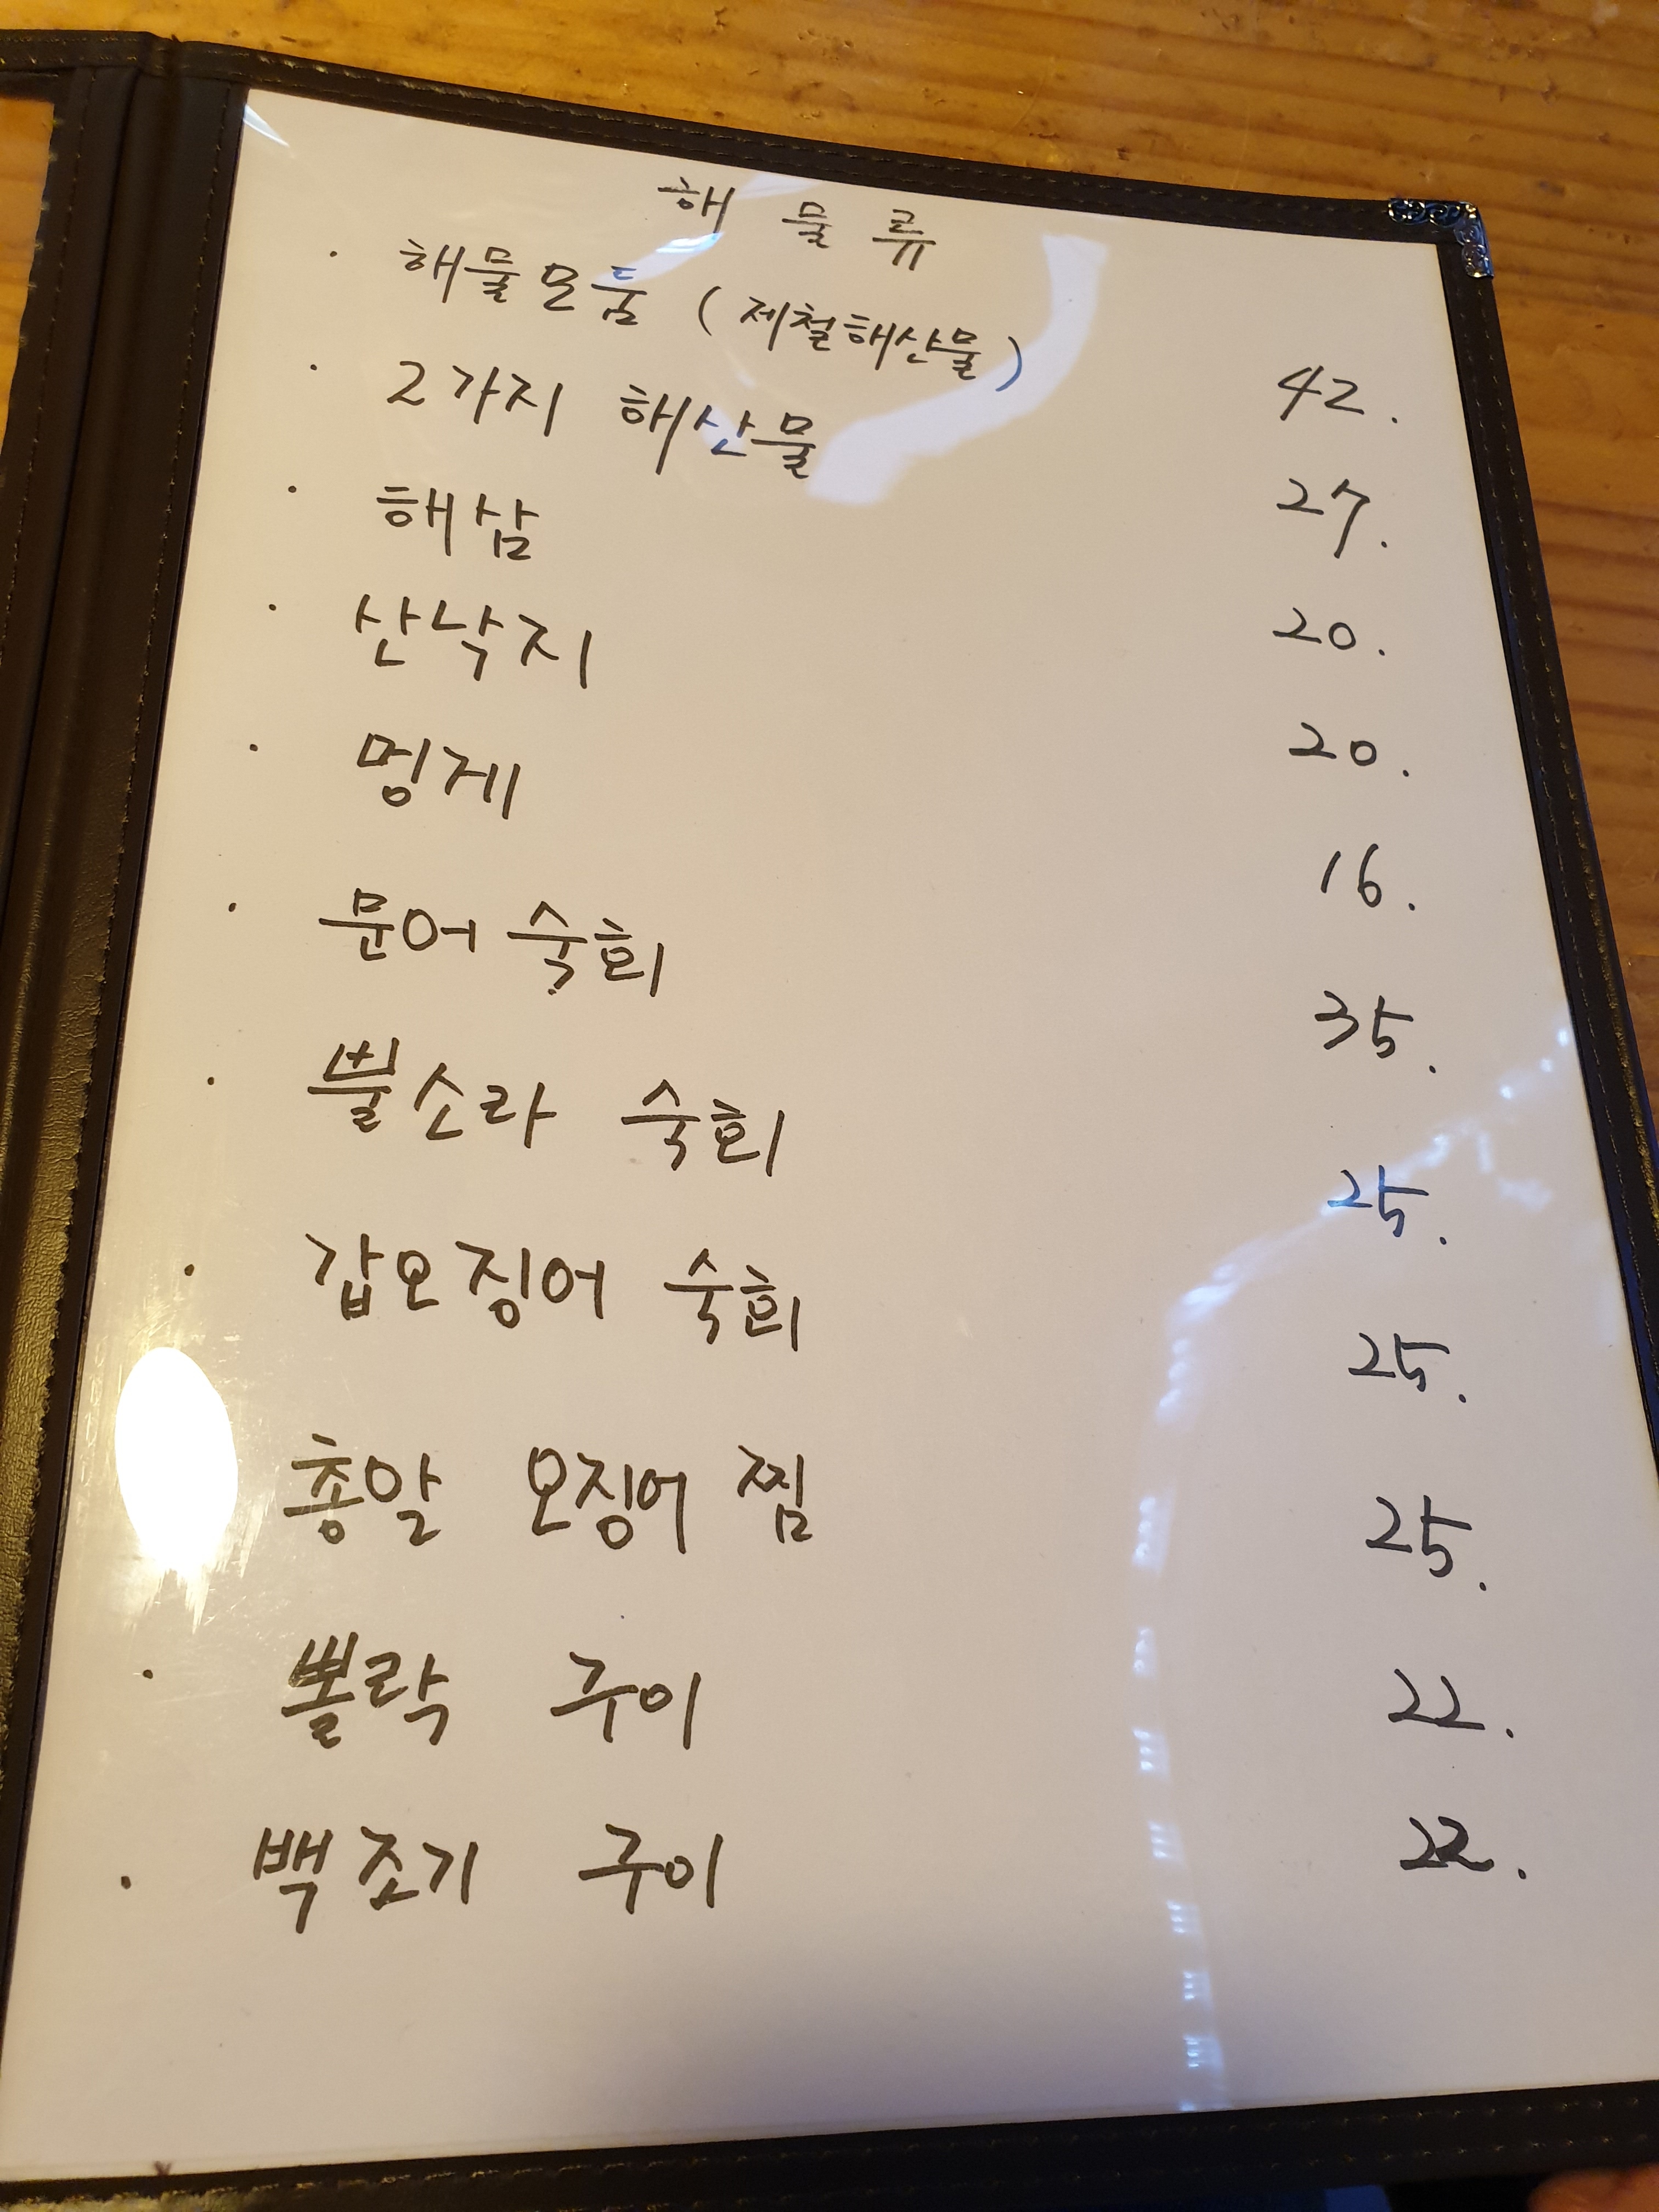 해물류
· 해물모둠 (제철해산물) 42.
· 2가지 해산물 27.
· 해삼 20.
· 산낙지 20.
· 멍게 16.
· 문어 숙회 35.
· 뿔소라 숙회 25.
· 갑오징어 숙회 25.
총알 오징어 찜 25.
· 뽈락 구이 22.
· 백조기 구이 22.